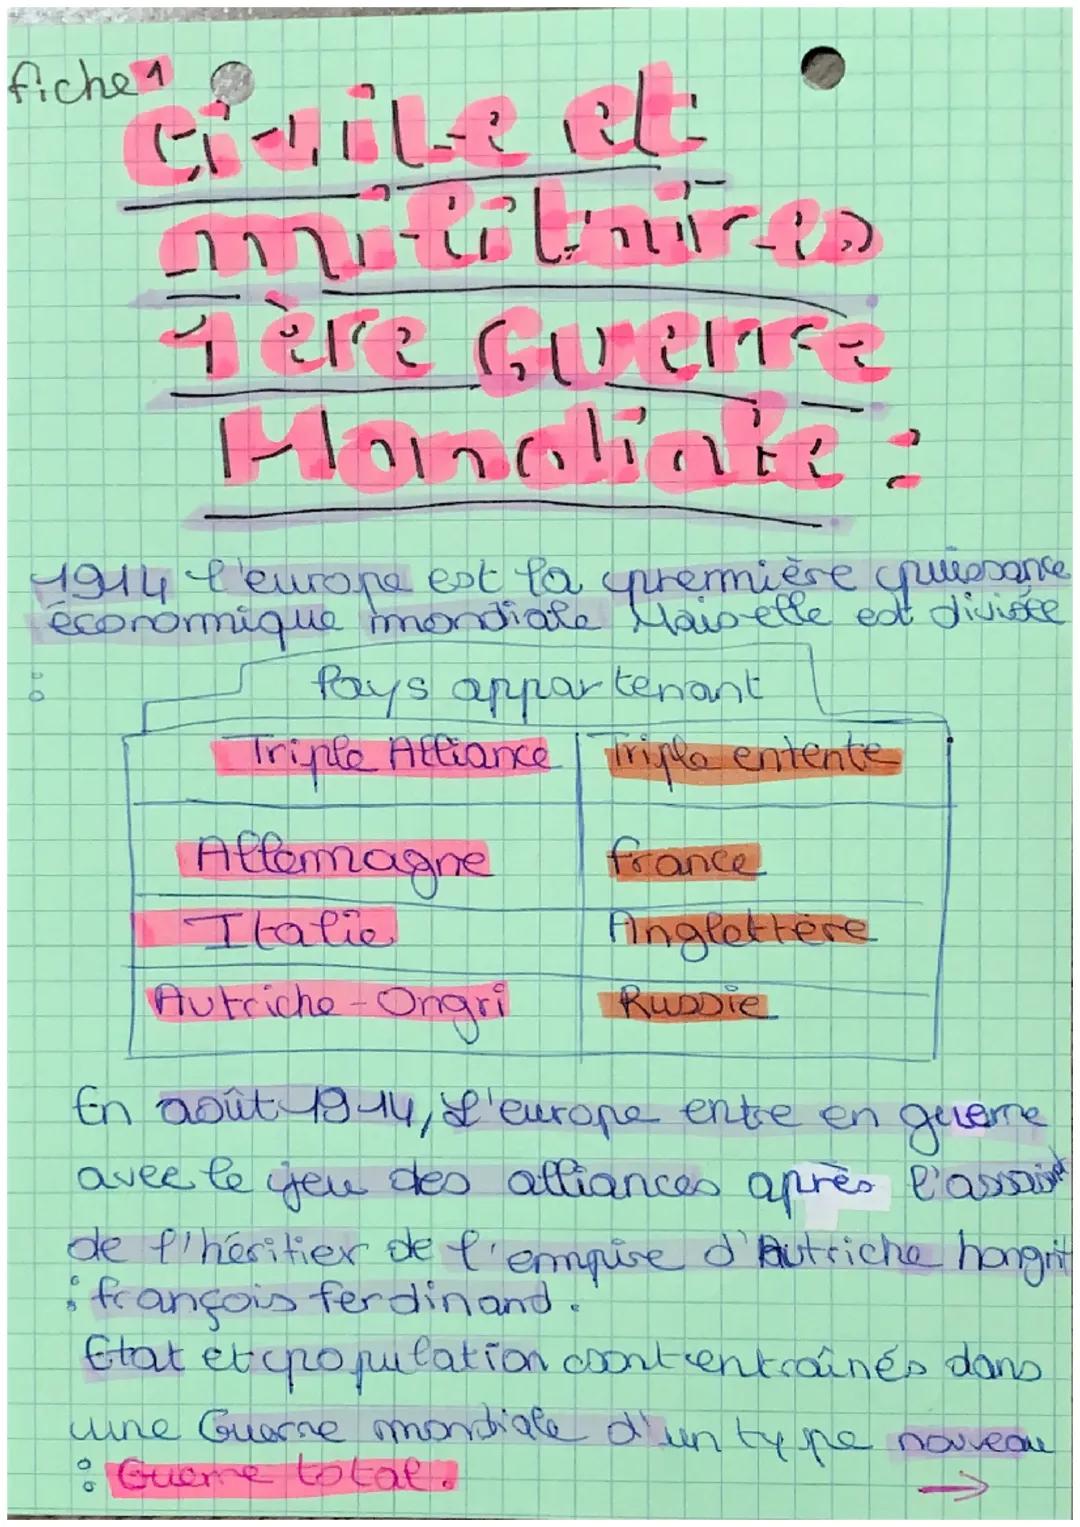 fiche 1
Civile et
militaires
1ère Guerre
Mondiale :
1914 l'europe est la première puissance
économique mondiale Mais elle est divisée
:
Pays appartenant
Triple Alliance Triple entente
Allemagne france
Italie Anglettère
Autriche-Ongri Russie
En août 1914, L'europe entre en guerre
avec le jeu des alliances après l'assaint
de l'héritier de l'empire d'Autriche hongrit
: françois ferdinand.
Etat et population sont entraînés dans
une Guerre mondiale d'un type nouveau
: Guerre total. →